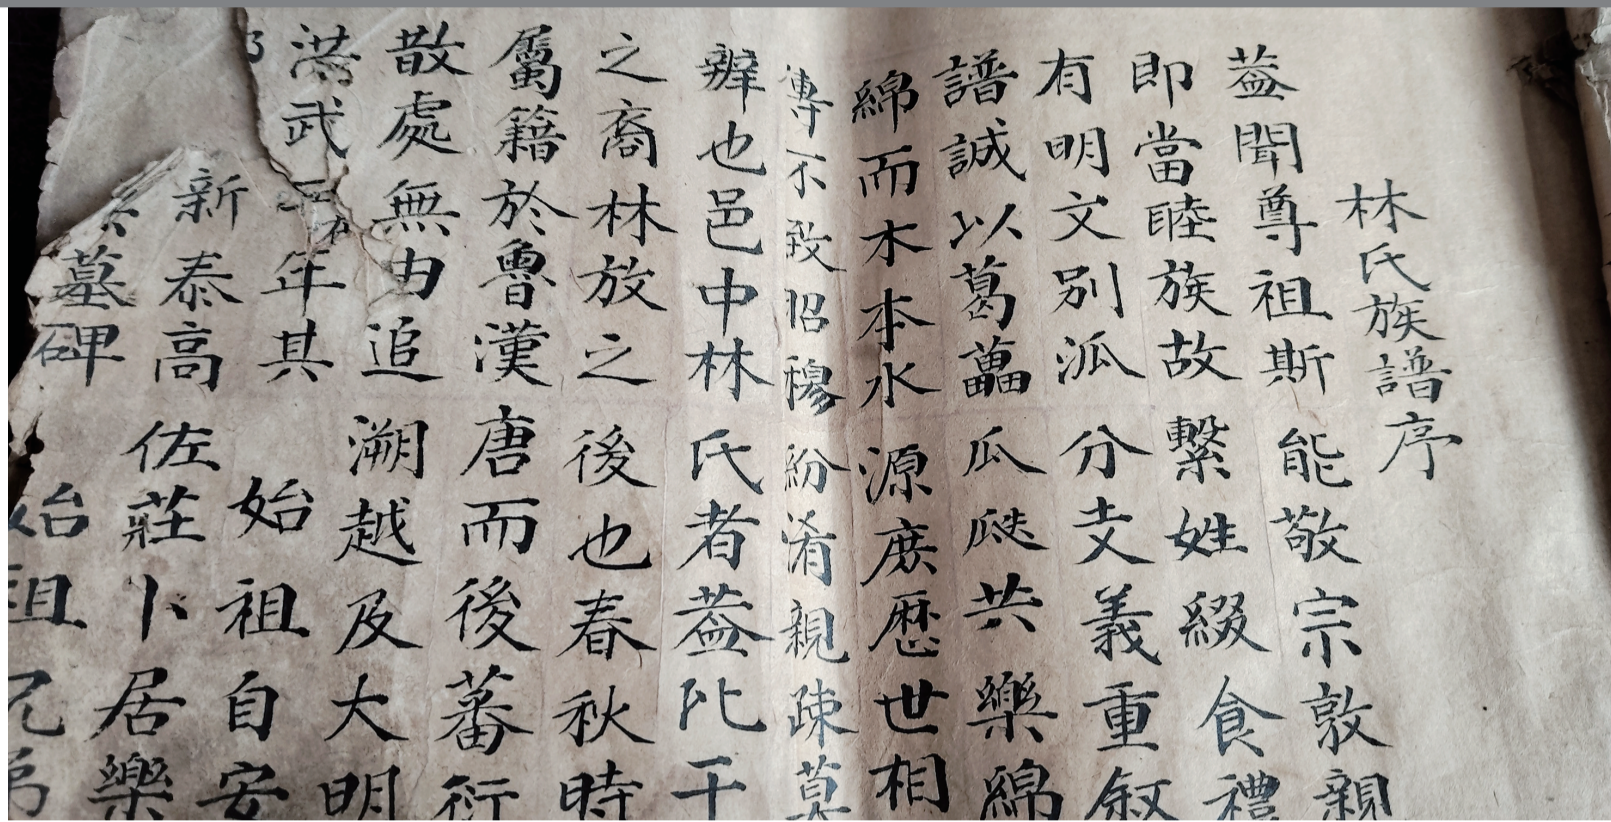 林氏族譜序
葢聞尊祖斯能敬宗敦親
即當睦族故繫姓綴食禮
有明文別泒分支義重叙
譜誠以葛藟瓜瓞共樂綿
綿而木本水源庶歷世相
傳不致昭穆紛淆親疎莫
辨也邑中林氏者葢比干
之裔林放之後也春秋時
屬籍於魯漢唐而後蕃衍
散處無由追溯越及大明
洪武年其始祖自安
新泰高佐莊卜居樂
墓碑始祖兄弟